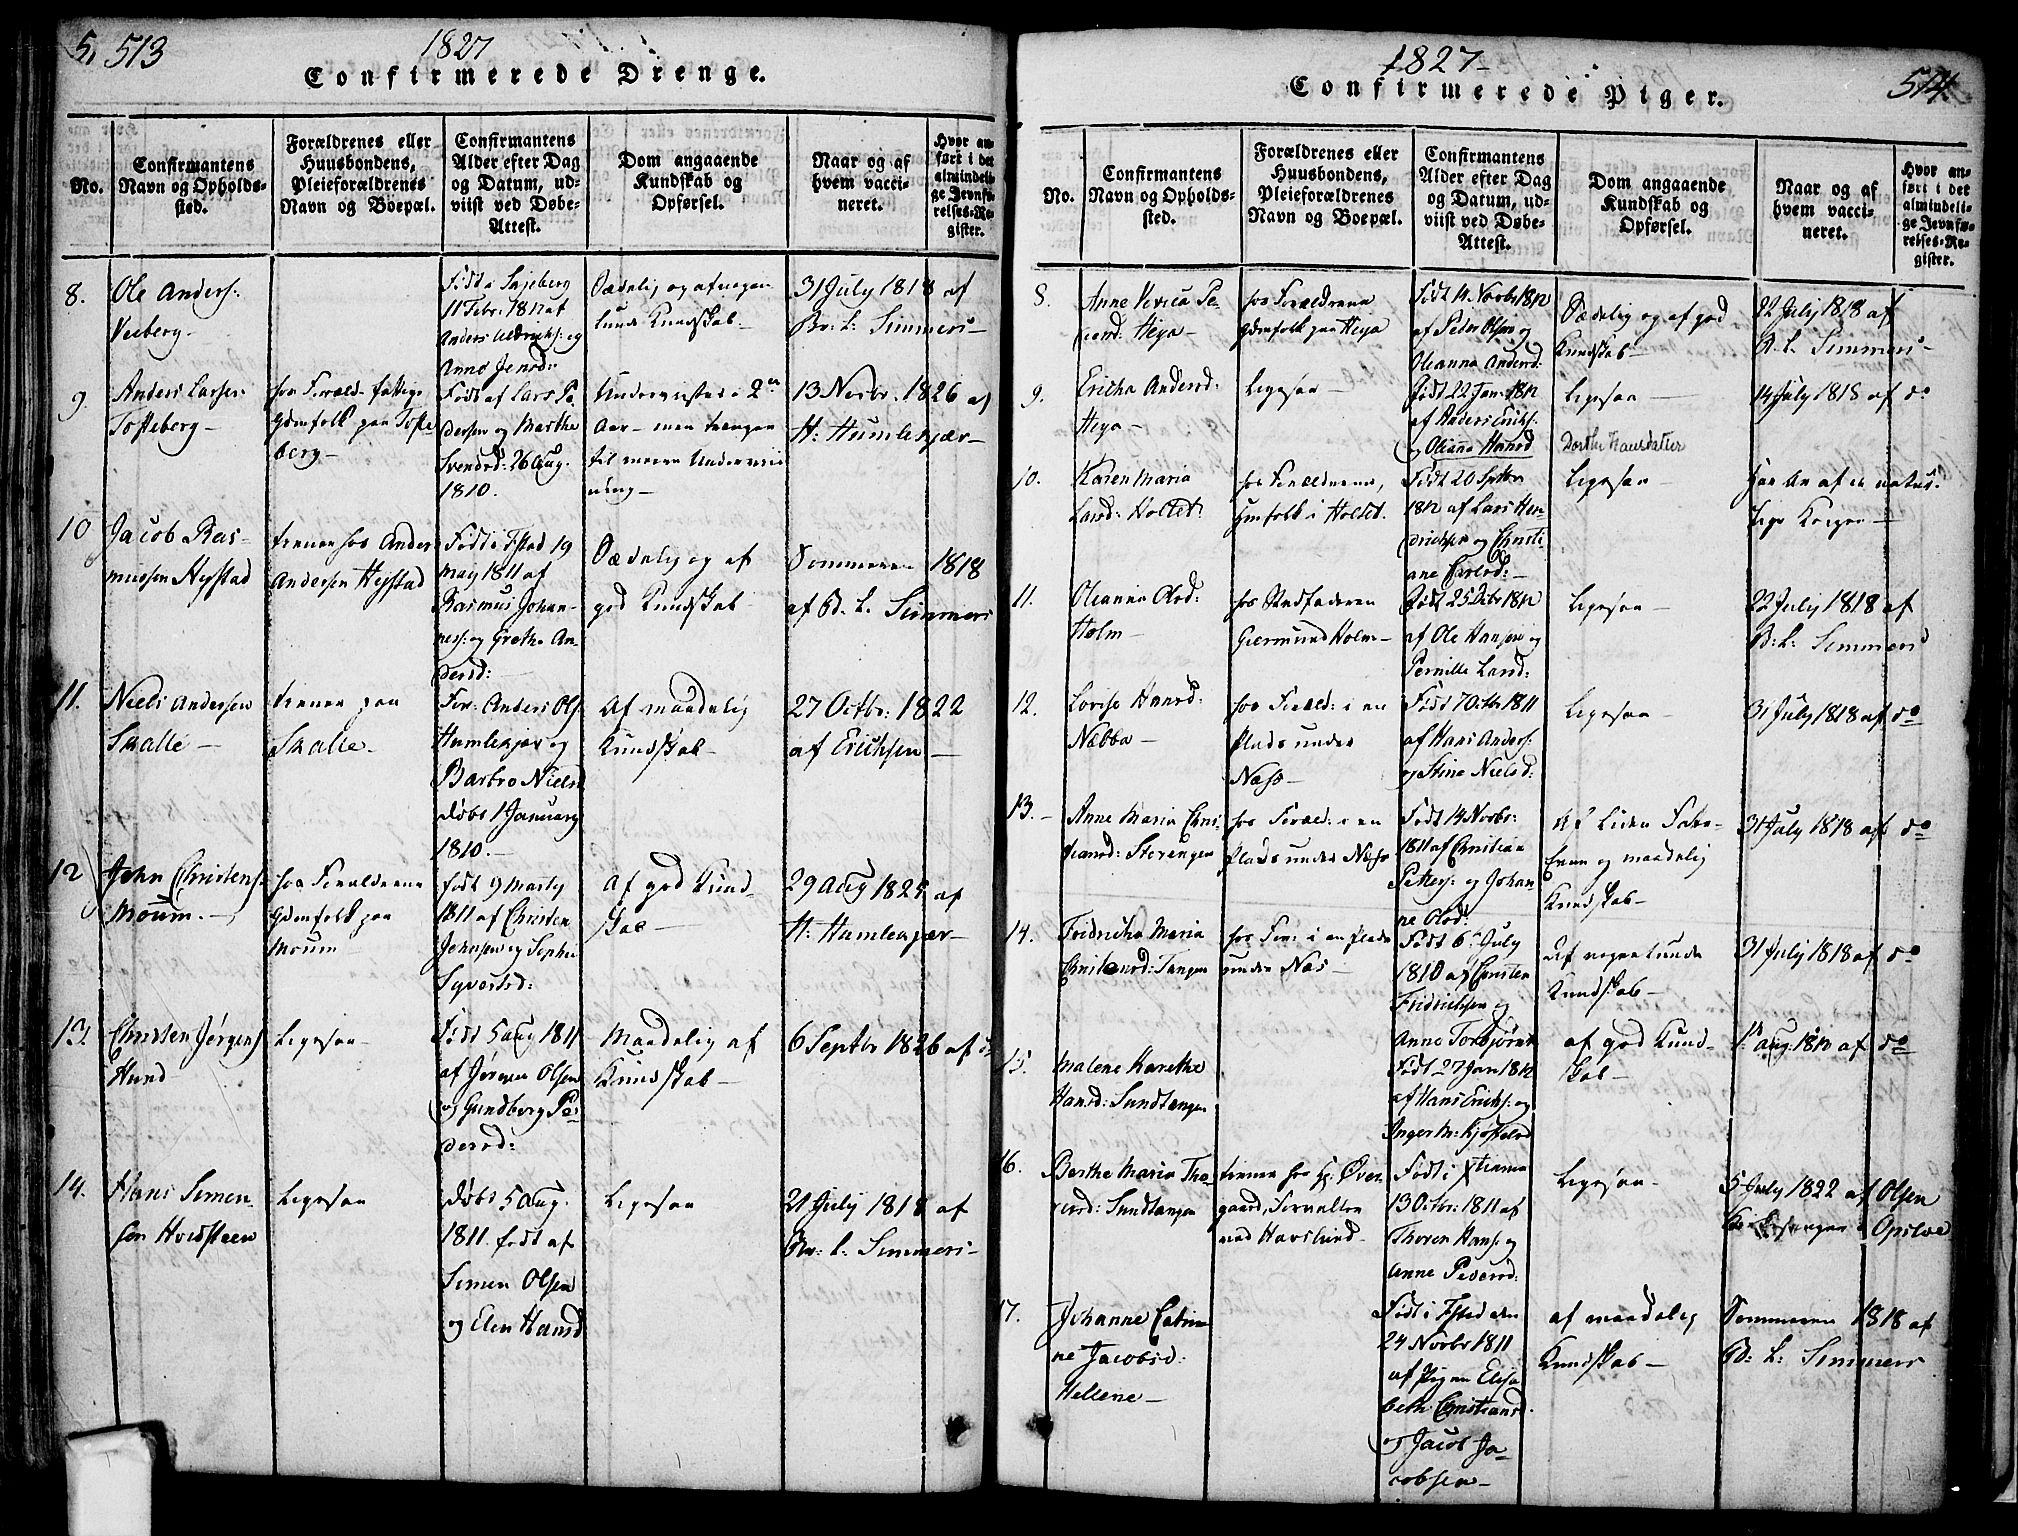 5, 513
1827
Confirmerede Drenge.
No.
Confirmantens
Navn og Opholds-
sted.
Forældrenes eller
Huusbondens,
Pleieforældrenes
Navn og Boepæl.
Confirmantens
Alder efter Dag
og Datum, ud-
viist ved Døbe-
Attest.
Dom angaaende
Kundskab og
Opførsel.
Naar og af
hvem vacci-
neret.
Hvor an-
ført i det
almindeli-
ge Jevnfø-
relses-Re-
gister.
8.
Ole Anders:
Veeberg-
Født i Ingeberg
11 Febr: 1812 af
Anders Aldricks: og
Anne Jensd:
Sædelig og af
Kundskab-
31 July 1818 af
Br: L: Simmers-
9
Anders Larsen
Tofteberg-
hos Foræld. fattige
Huusfolk paa Tofte
berg-
Født af Lars Pe
dersen og Marthe
Svendsd: 26 Aug.
1810.
Underviist i 2de
Aar- men trænger
til mere Underviis
ning-
13 Novbr. 1826 af
H: Humlekjær-
10
Jacob Ras-
mussen Heystad
tiener hos Anders
Andersen Heystad
Født i Fstad 19
May 1811 af
Rasmus Johan-
nes: og Grethe An-
dersd:
Sædelig og af
god Kundskab-
Sommeren 1818
af Bd. L. Simmers
11.
Niels Andersen
Skalle-
tiener paa
Skalle-
For: Anders Ols:
Humlekjær og
Barbro Nielsd
døbt 1 January
1810.-
Af maadelig
Kundskab-
27 Octbr: 1822
af Erichsen-
12
John Christens:
Moum.-
hos Forældrene
Huusfolk paa
Moum
født 9 Marty
1811 af Christen
Johnsen og Sophie
Syversd:
Af god Kund-
skab-
29 Aug 1825 af
H: Humlekjær-
13.
Christen Jørgens
Hund
Ligesaa-
født 5 Aug 1811
af Jørgen Olsen
og Gundborg Pe-
dersd:
Maadelig af
Kundskab-
6 Septbr 1826 af do
14.
Hans Simen-
sen Hvidsteen
Ligesaa
døbt 5 Aug.
1811. født af
Simen Olsen
og Elen Hansd
Ligesaa
21 July 1818 af
Br: L: Simmers-
1827-
Confirmerede Piger.
514
No.
Confirmantens
Navn og Opholds-
sted.
Forældrenes eller
Huusbondens,
Pleieforældrenes
Navn og Boepæl.
Confirmantens
Alder efter Dag
og Datum, ud-
viist ved Døbe-
Attest.
Dom angaaende
Kundskab og
Opførsel.
Naar og af
hvem vacci-
neret.
Hvor an-
ført i det
almindeli-
ge Jevnfø-
relses-Re-
gister.
8.
Anne Pe-
dersd: Heya-
hos Forældrene
Huusfolk paa Heya
Født 14 Novbr 1812
af Peder Olsen og
Oleanna Andersd:
Sædelig og af god
Kundskab-
22 July 1818 af
B. L. Simmers-
9.
Ericha Andersd:
Heya-
Ligesaa-
Født 22 Jan: 1812
af Anders Erichs:
og Oleana Hansd
Dorthe Hansdatter
Ligesaa-
14 July 1818 af do
10.
Karen Maria
Larsd: Holtet:
hos Forældrene,
Huusfolk i Holtet.
Født 20 Septbr
1812 af Lars Hen-
drichsen og Christi-
ane Carlsd:-
Ligesaa-
har havt de natur-
lige Kopper-
11.
Oleanna Olsd:
Holm-
hos Stedfaderen
Giermund Holm-
Født 25 Octbr 1812
af Ole Hansen og
Pernille Larsd:
Ligesaa-
22 July 1818 af
B: L: Simmers
12.
Lovise Hansd:
Næbba-
hos Foræld: i en
Plads under
Næss-
Født 7 Octbr 1811
af Hans Anders:
og Stine Nielsd:
Ligesaa-
31 July 1818 af do
13.-
Anne Maria Chris-
tiansd: Storengen
hos Foræld: i en
Plads under Næss
Født 14 Novbr:
1811 af Christian
Petters: og Johan-
ne Olsd:
Af liden Sabe-
Evne og maadelig
Kundskab-
31 July 1818 af do
14.
Fridricha Maria
Christensd: Tangen
hos For: i en Plads
under Næs-
Født 6te July
1810 af Christen
Fridrichsen og
Anne Torbjørns
Af nogenlunde
Kundskab-
31 July 1818 af do
15.
Malene Karethe
Hansd: Sundtangen
Født 27 Jan 1812
af Hans Erichs: og
Inger M: Kjøstelsd
af god Kund-
skab-
1te Aug. 1812 af do
16.
Berthe Maria Tho-
rersd: Sundtangen
tiener hos Hr: Øver
gaard, Forvalter
ved Hafslund-
Født i
13 Octbr: 1811 af
Thoren Hans: og
Anne Pedersd:
Ligesaa-
5 July 1822 af Olsen
Opsloe
17.
Johanne Catri-
ne Jacobsd:
Hellene-
Født i Fstad den
24 Novbr 1811
af Pigen Elisa
beth Christiansd.
og Jacob Ja-
cobsen-
af maadelig
Kundskab-
Sommeren 1818 af
Bd: L: Simmers